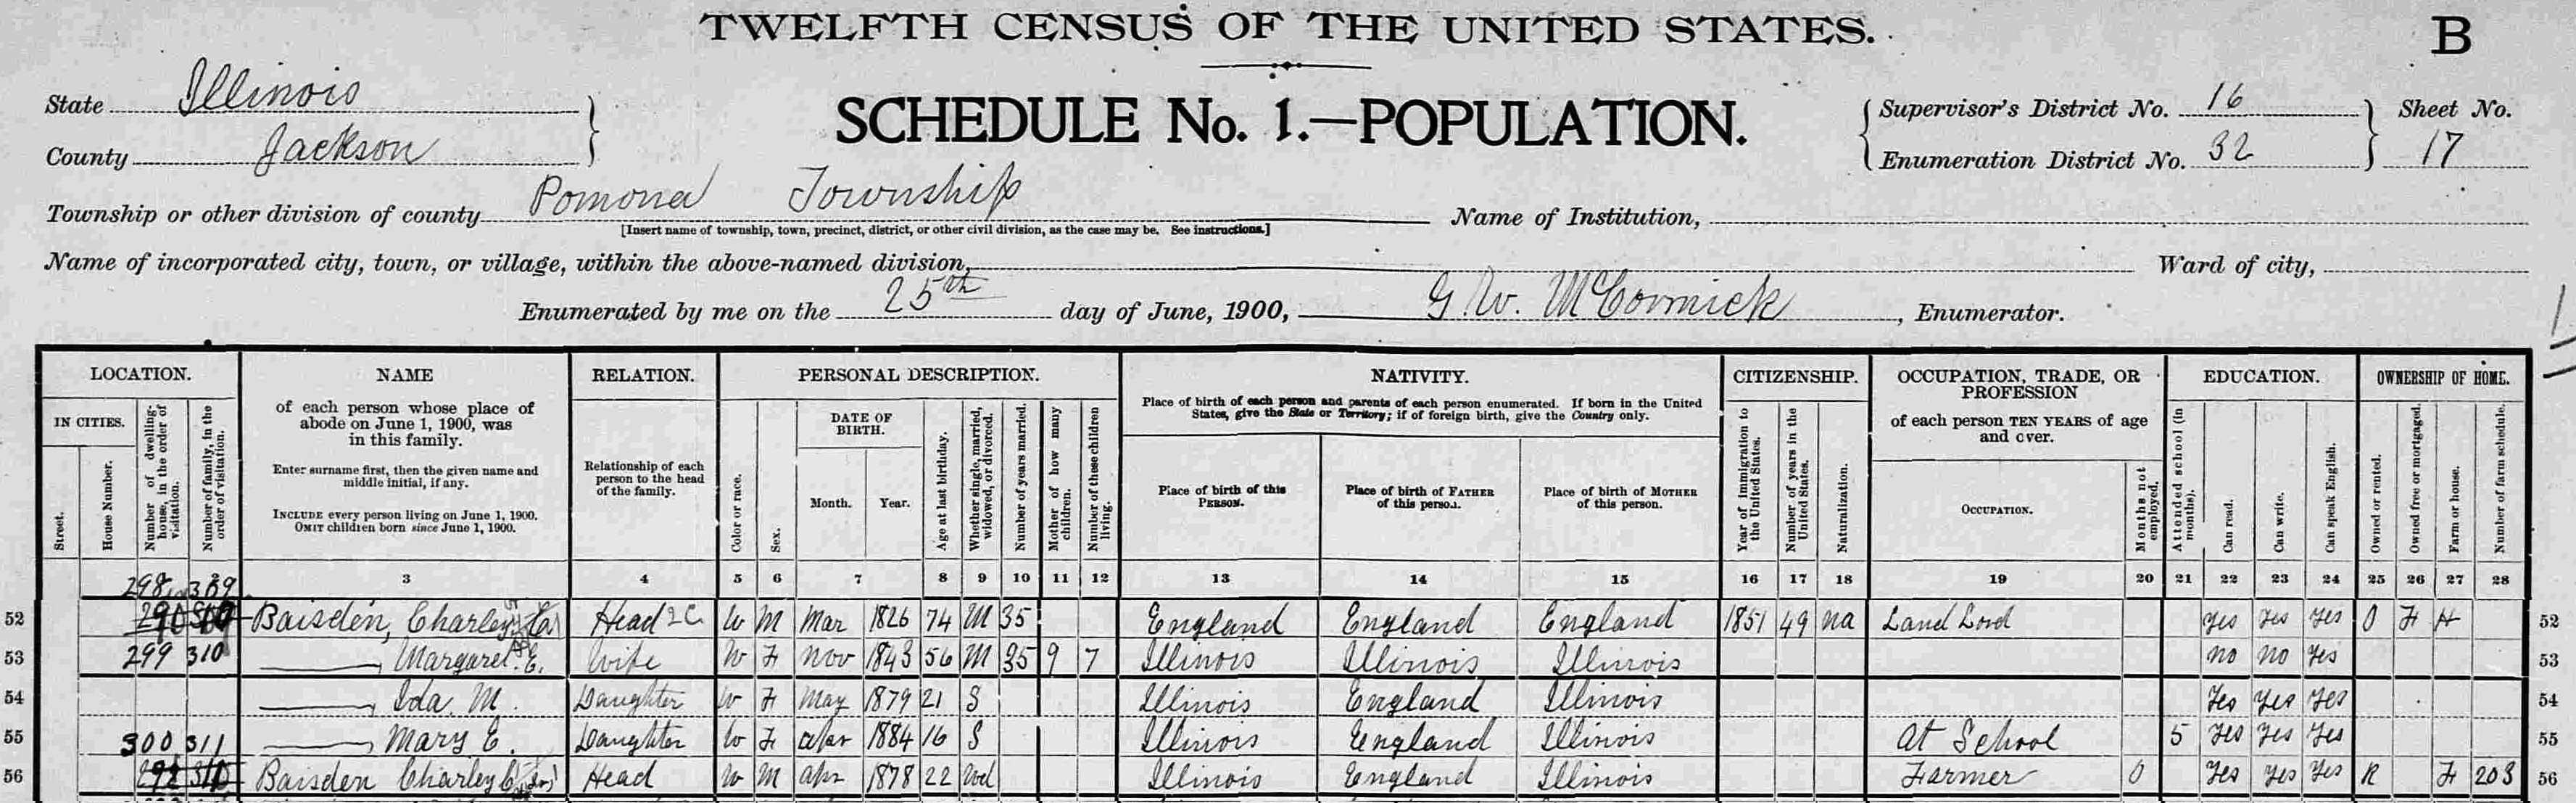 TWELFTH CENSUS OF THE UNITED STATES.
B
State Illinois
County Jackson
SCHEDULE No. 1.—POPULATION.
Supervisor's District No. 16
Enumeration District No. 32
Sheet No.
17
Township or other division of county Pomona Township
[Insert name of township, town, precinct, district, or other civil division, as the case may be. See instructions.]
Name of Institution,
Name of incorporated city, town, or village, within the above-named division,
Ward of city,
Enumerated by me on the 25th day of June, 1900, G. W. McCormick, Enumerator.
LOCATION.
IN CITIES.
Street.
House Number.
Number of dwelling-house, in the order of visitation.
Number of family, in the order of visitation.
NAME
of each person whose place of abode on June 1, 1900, was in this family.
Enter surname first, then the given name and middle initial, if any.
INCLUDE every person living on June 1, 1900.
OMIT children born since June 1, 1900.
RELATION.
Relationship of each person to the head of the family.
PERSONAL DESCRIPTION.
Color or race.
Sex.
DATE OF BIRTH.
Month.
Year.
Age at last birthday.
Whether single, married, widowed, or divorced.
Number of years married.
Mother of how many children.
Number of these children living.
NATIVITY.
Place of birth of each person and parents of each person enumerated. If born in the United States, give the State or Territory; if of foreign birth, give the Country only.
Place of birth of this PERSON.
Place of birth of FATHER of this person.
Place of birth of MOTHER of this person.
CITIZENSHIP.
Year of immigration to the United States.
Number of years in the United States.
Naturalization.
OCCUPATION, TRADE, OR PROFESSION
of each person TEN YEARS of age and over.
OCCUPATION.
Months not employed.
EDUCATION.
Attended school (in months).
Can read.
Can write.
Can speak English.
OWNERSHIP OF HOME.
Owned or rented.
Owned free or mortgaged.
Farm or house.
Number of farm schedule.
2 3 4 5 6 7 8 9 10 11 12 13 14 15 16 17 18 19 20 21 22 23 24 25 26 27 28
298 309
52 Baisden, Charley Head W M Mar 1826 74 M 35 England England England 1851 49 na Land Lord Yes Yes Yes O F H 52
53 299 310 Margaret E. Wife W F Nov 1843 56 M 35 9 7 Illinois Illinois Illinois no no Yes 53
54 Ida M. Daughter W F May 1879 21 S Illinois England Illinois Yes Yes Yes 54
55 300 311 Mary E. Daughter W F apr 1884 16 S Illinois England Illinois At School 5 Yes Yes Yes 55
56 Baisden Charley Head W M apr 1878 22 Wd Illinois England Illinois Farmer 0 Yes Yes Yes R F 203 56